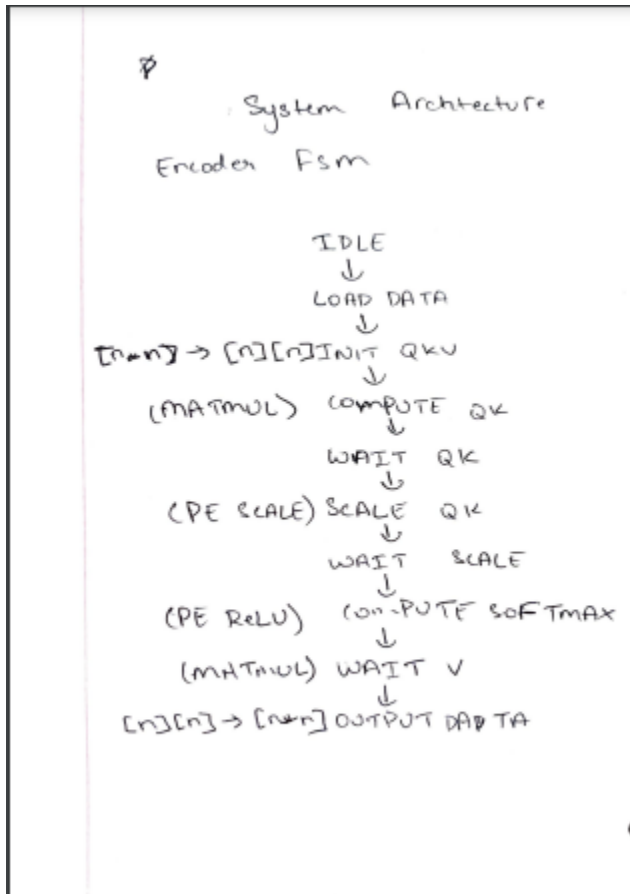 System Archtecture
Encoder Fsm
IDLE
↓
LOAD DATA
↓
[n*n] → [n][n] INIT QKV
↓
(MATMUL) COMPUTE QK
↓
WAIT QK
↓
(PE SCALE) SCALE QK
↓
WAIT SCALE
↓
(PE ReLU) COMPUTE SOFTMAX
↓
(MATMUL) WAIT V
↓
[n][n] → [n*n] OUTPUT DATA